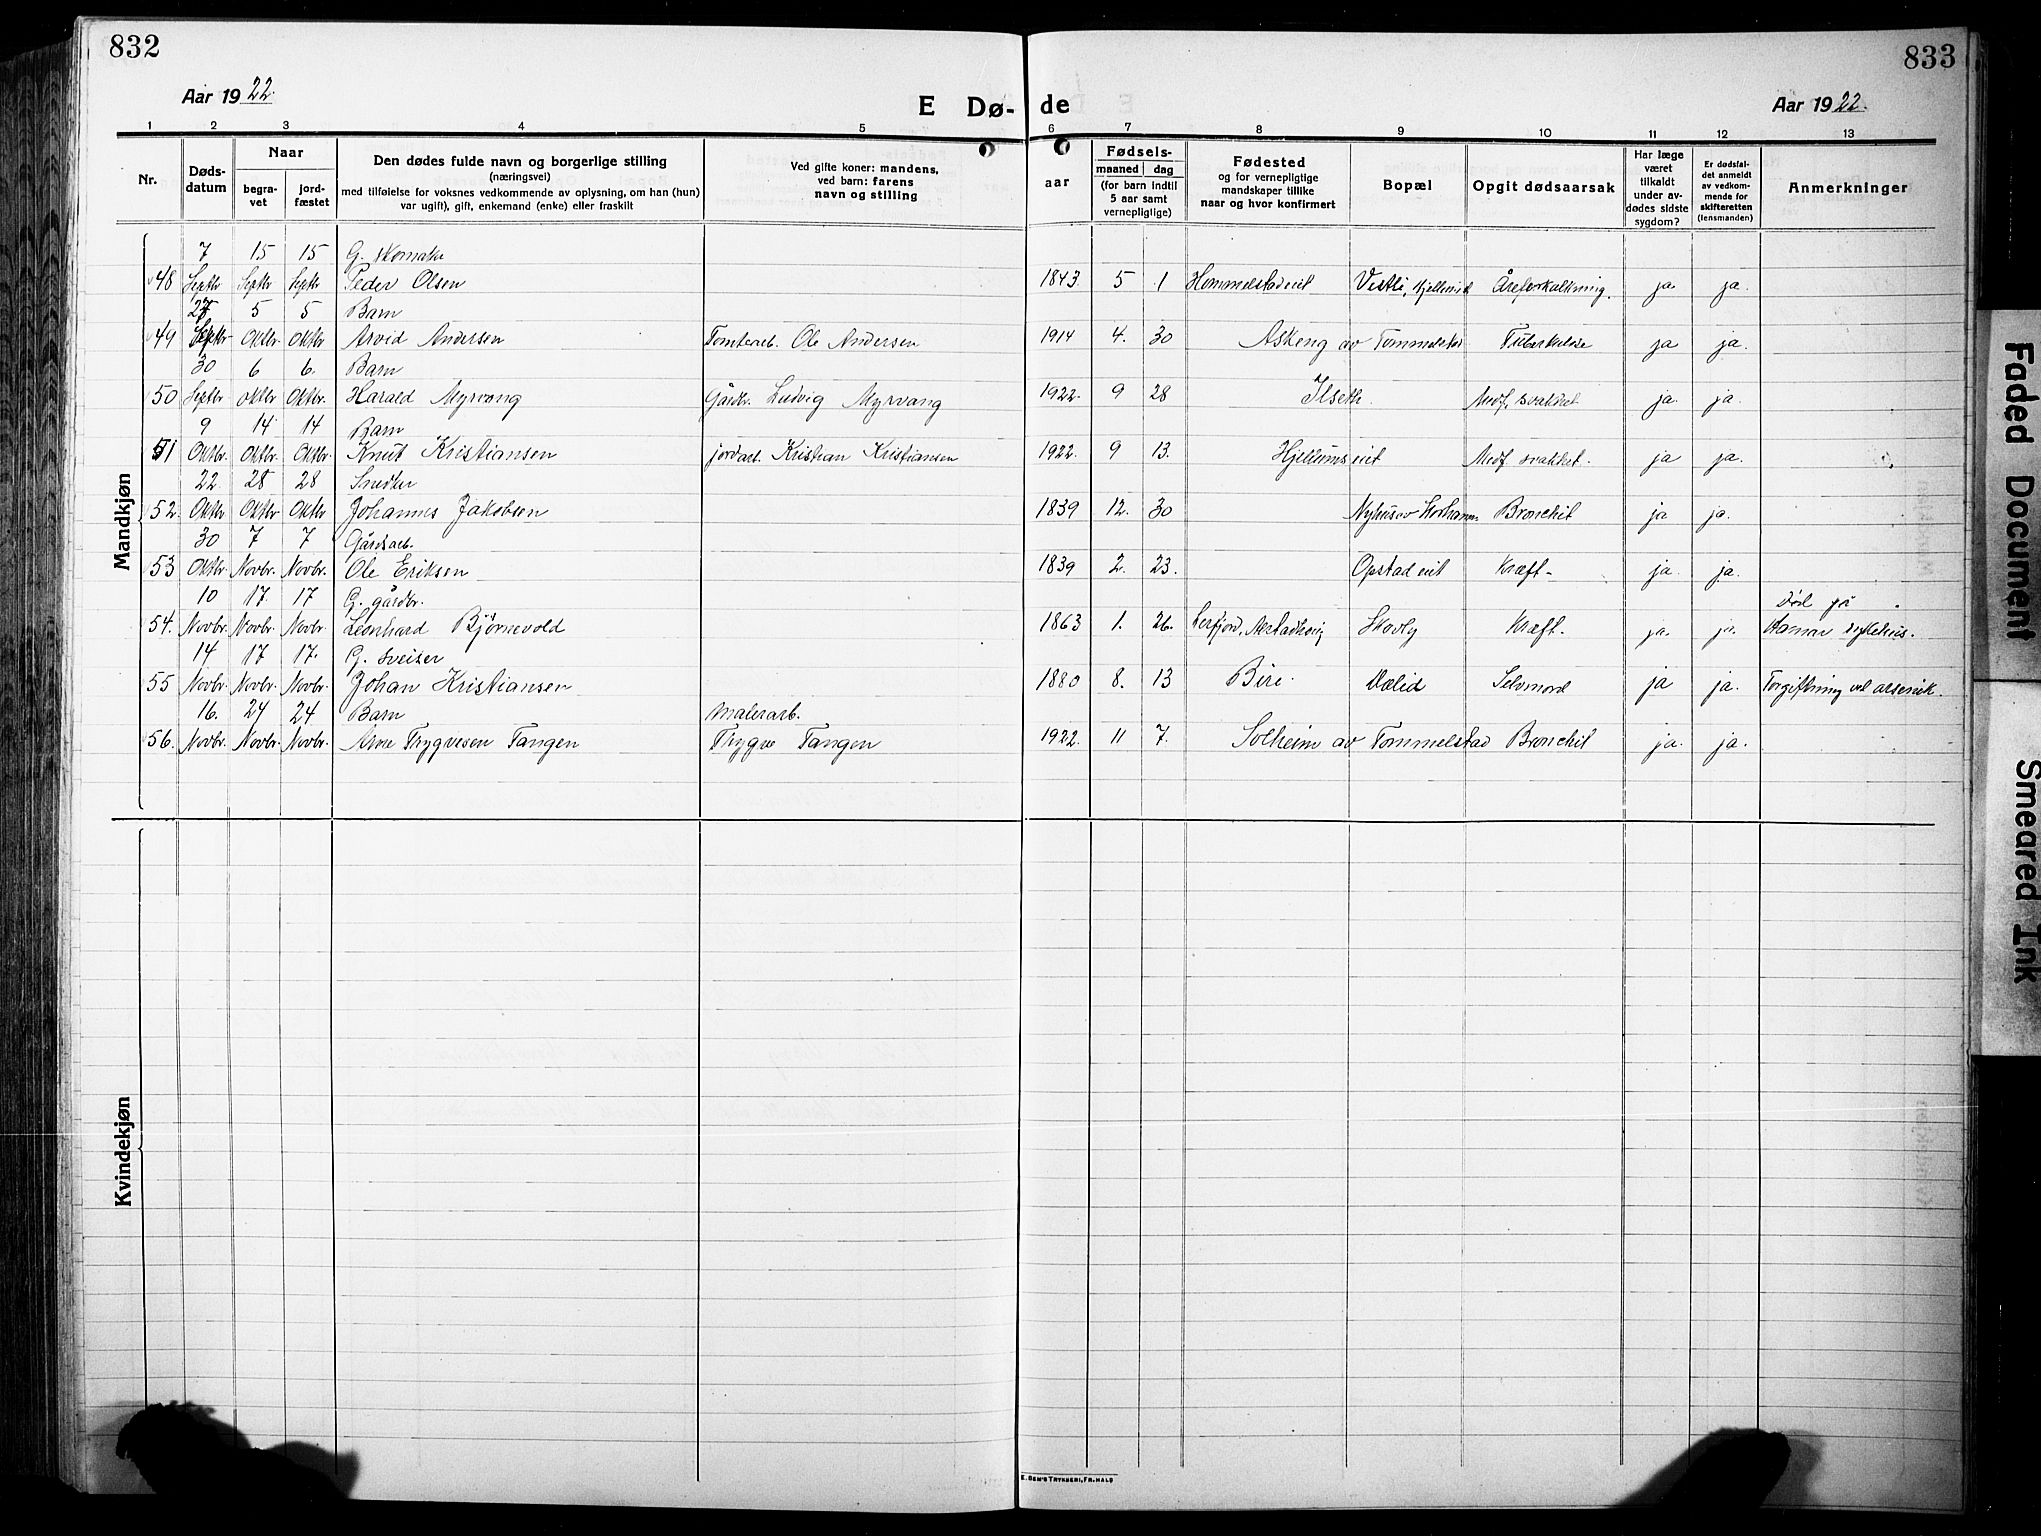 832
833
Aar 1922.
E Dø-
de
Aar 1922.
1 2 3 4 5 6 7 8 9 10 11 12 13
Nr.
Døds-
datum
Naar
begra-
vet
jord-
fæstet
Den dødes fulde navn og borgerlige stilling
(næringsvei)
med tilføielse for voksnes vedkommende av oplysning, om han (hun)
var ugift), gift, enkemand (enke) eller fraskilt
Ved gifte koner: mandens,
ved barn: farens
navn og stilling
aar
Fødsels-
maaned dag
(for barn indtil
5 aar samt
vernepligtige)
Fødested
og for vernepligtige
mandskaper tillike
naar og hvor konfirmert
Bopæl
Opgit dødsaarsak
Har læge
været
tilkaldt
under av-
dødes sidste
sygdom?
Er dødsfal-
det anmeldt
av vedkom-
mende for
skifteretten
(lensmanden)
Anmerkninger
Mandkjøn
7 15 15 G. skomaker
48 Septbr Septbr Septbr Peder Olsen 1843 5 1 Hommelstadeiet Vestli, Åreforkalkning. ja ja.
5 5 Barn
49 Septbr Oktbr Oktbr Arvid Andersen Tomtearb. Ole Andersen 1914 4. 30 Askeng av Tommelstad Tuberkulose ja ja.
30 6 6. Barn
50 Septbr Oktbr Oktbr. Harald Myrvang Gårdbr. Ludvig Myrvang 1922 9 28 Ilseth Medf. svakhet ja ja.
9 14 14 Barn
51 Oktbr. Oktbr. Oktbr. Knut Kristiansen jordarb. Kristian Kristiansen 1922. 9 13. Hjellumseiet Medf. svakhet. ja ja.
22. 28 28 Snedker
52. Oktbr Oktbr Oktbr Johannes Jakobsen 1839 12. 30 Nyhus av Bronchit ja ja.
30 7 7 Gårdsarb.
53 Oktbr. Novbr. Novbr. Ole Eriksen 1839 2. 23. Opstadeiet Kræft - ja ja.
10 17 17 G. gårdbr. Død på
54. Novbr. Novbr. Novbr. Leonhard Bjørnevold 1863 1. 26. Skovly Kræft. ja. ja. Hamar sykehus.
14 17 17. G. sveiser
55 Novbr. Novbr. Novbr. Johan Kristiansen 1880 8. 13 Biri. Vælid Selvmord ja ja. Forgiftning ved arsenik.
16. 24 24 Barn Malerarb.
56. Novbr. Novbr. Novbr. Arne Trygvesen Tangen Trygve Tangen 1922. 11 7. Solheim av Tommelstad Bronchit ja. ja.
Kvindekjøn
E. SEM'S TRYKKERI, FR.HALD
Faded Document
Smeared Ink